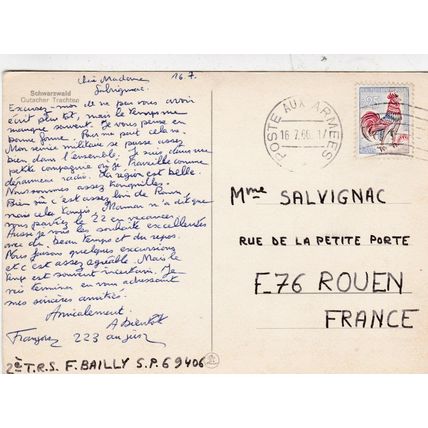 Schwarzwald
Gutacher Trachten
Chère Madame 16.7.
Salvignac.
Excusez-moi de ne pas vous avoir
écrit plus tôt, mais le temps me
manque souvent. Je vous pense en
bonne forme. Pour ma part cela va.
Mon service militaire se passe assez
bien dans l'ensemble. Je suis dans une
petite compagnie où je travaille comme
dépanneur radio. La région est belle.
Nous sommes assez tranquilles.
Bien sûr c'est assez loin de Rouen
mais cela Maman m'a dit que
vous partiez le 22 en vacances.
Aussi je vous les souhaite excellentes
avec du beau temps et du repos.
faisons quelques excursions
et c'est assez agréable. Mais le
temps est souvent incertain. Je
vais terminer en vous adressant
mes sincères amitiés.
Amicalement.
A bientôt
François 223 au jus
2è T.R.S. F. BAILLY S.P. 69406
POSTE AUX ARMÉES
16.7.66
Mme SALVIGNAC
RUE DE LA PETITE PORTE
E76 ROUEN
FRANCE